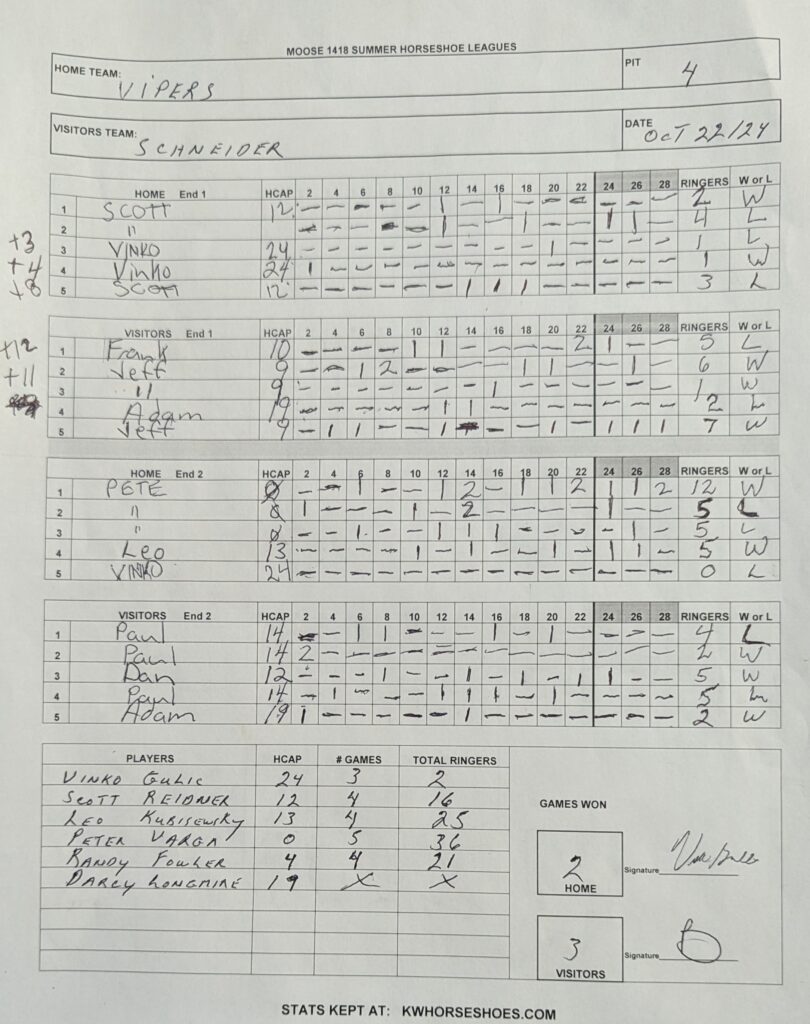 MOOSE 1418 SUMMER HORSESHOE LEAGUES
HOME TEAM: VIPERS PIT 4
VISITORS TEAM: SCHNEIDER DATE OCT 22/24
HOME End 1 HCAP 2 4 6 8 10 12 14 16 18 20 22 24 26 28 RINGERS W or L
1 SCOTT 12 - - - - - 1 - 1 - - - - - - 2 W
2 " - - - - - 1 - - 1 - - 1 1 - 4 L
+3
3 VINKO 24 - - - - - - - - - 1 - - - - 1 L
+4
4 Vinko 24 1 - - - - - - - - - - - - - 1 W
+8
5 SCOTT 12 - - - - - - 1 1 1 - - - - - 3 L
VISITORS End 1 HCAP 2 4 6 8 10 12 14 16 18 20 22 24 26 28 RINGERS W or L
+12
1 Frank 10 - - - - 1 1 - - - - 2 1 - - 5 L
+11
2 Jeff 9 - - 1 2 - - - - 1 1 - - 1 - 6 W
3 " 9 - - - - - - - 1 - - - - - - 1 W
4 Adam 19 - - - - - 1 1 - - - - - - - 2 L
5 Jeff 9 - 1 1 - - 1 - - - 1 - 1 1 1 7 W
HOME End 2 HCAP 2 4 6 8 10 12 14 16 18 20 22 24 26 28 RINGERS W or L
1 PETE 0 - - 1 - - 1 2 - 1 1 2 1 1 2 12 W
2 " 0 1 - - - 1 - 2 - - - - 1 - - 5 L
3 " 0 - - 1 - - 1 1 1 - - - - 1 - 5 L
4 Leo 13 - - - - 1 - 1 - - 1 - 1 1 - 5 W
5 VINKO 24 - - - - - - - - - - - - - - 0 L
VISITORS End 2 HCAP 2 4 6 8 10 12 14 16 18 20 22 24 26 28 RINGERS W or L
1 Paul 14 - - 1 1 - - - 1 - 1 - - - - 4 L
2 Paul 14 2 - - - - - - - - - - - - - 2 W
3 Dan 12 - - - 1 - - 1 - 1 - 1 1 - - 5 W
4 Paul 14 - 1 - - - 1 1 1 - 1 - - - - 5 L
5 Adam 19 1 - - - - - 1 - - - - - - - 2 W
PLAYERS HCAP # GAMES TOTAL RINGERS
VINKO GULIC 24 3 2
SCOTT REIDNER 12 4 16
LEO KUBISEWSKY 13 4 25
PETER VARGA 0 5 36
RANDY FOWLER 4 4 21
DARCY LONGMIRE 19 X X
GAMES WON
2 Signature
HOME
3 Signature
VISITORS
STATS KEPT AT: KWHORSESHOES.COM